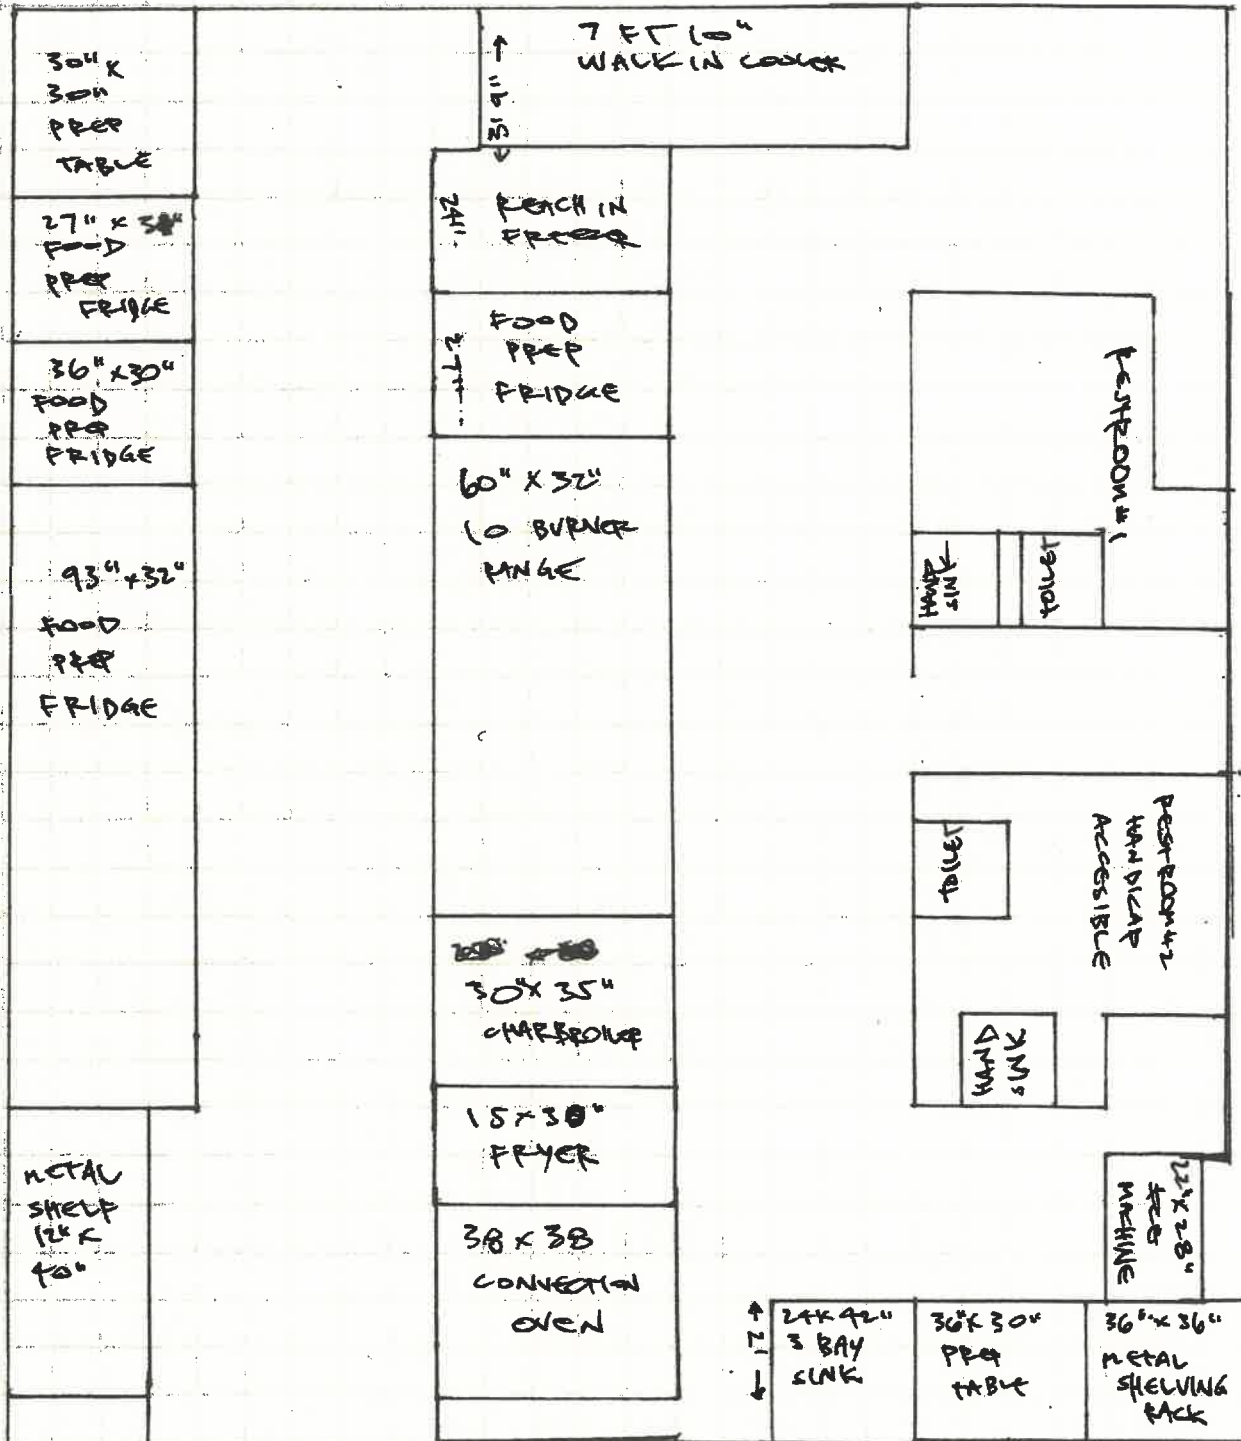 30" x
30"
PREP
TABLE
27" x
FOOD
PREP
FRIDGE
36" x 30"
FOOD
PREP
FRIDGE
93" x 32"
FOOD
PREP
FRIDGE
METAL
SHELF
12" x
40"
7 FT 10"
WALK IN COOLER
3' 9"
24"
REACH IN
FREEZER
27"
FOOD
PREP
FRIDGE
60" X 32"
10 BURNER
RANGE
30" x 35"
CHARBROILER
15 x 30"
FRYER
38 x 38
CONVECTION
OVEN
RESTROOM #1
HAND
SINK
TOILET
RESTROOM #2
HANDICAP
ACCESSIBLE
TOILET
HAND
SINK
22" X 28"
ICE
MACHINE
2'
24 x 42"
3 BAY
SINK
36" x 30"
PREP
TABLE
36" x 36"
METAL
SHELVING
RACK